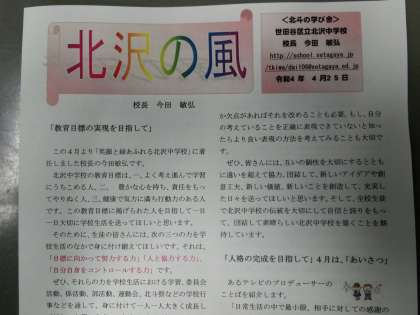 北沢の風
＜北斗の学び舎＞
世田谷区立北沢中学校
校長　今田　敏弘
令和4年　4月25日
校長　今田　敏弘
「教育目標の実現を目指して」
この４月より「笑顔と緑あふれる北沢中学校」に着
任しました校長の今田敏弘です。
北沢中学校の教育目標は、一、よく考え進んで学習
にうちこめる人、二、　豊かな心を持ち、責任をもっ
てやりぬく人、三、健康で気力に満ち行動力のある人
です。この教育目標に掲げられた人を目指して一日
一日大切に学校生活を送ってほしいと思います。
そのために、生徒の皆さんには、次の三つの力を学
校生活のなかで身に付けて欲しいです。それは、
「目標に向かって努力する力」「人と協力する力」、
「自分自身をコントロールする力」です。
ぜひ、それらの力を学校生活における学習、委員会
活動、係活動、部活動、運動会、北斗祭などの学校行
事などを通して、身に付けて一人一人大きく成長し
か欠点があればそれを改めることも必要。もし、自分
の考えていることを正確に表現できていないと知っ
たらより良い表現の方法を考えてみることも大切で
す。
ぜひ、皆さんには、互いの個性を大切にするととも
に違いを超えて協力、団結して、新しいアイデアや創
意工夫、新しい価値、新しいことを創造して、充実し
た日々を送ってほしいと思います。そして、全校生徒
で北沢中学校の伝統を大切にして自信と誇りをもっ
て、団結して素晴らしい北沢中学校を築くことを期
待しています。
「人格の完成を目指して」４月は、「あいさつ」
あるテレビのプロデューサーの
ことばを紹介します。
「日常生活の中で最小限、相手に対しての感謝の